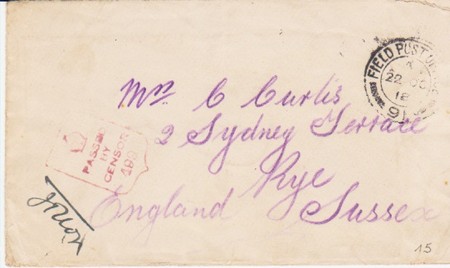 FIELD POST OFFICE
22 OC
18
91
Mrs C Curtis
2 Sydney Terrace
Rye
England Sussex
PASSED
BY
CENSOR
15